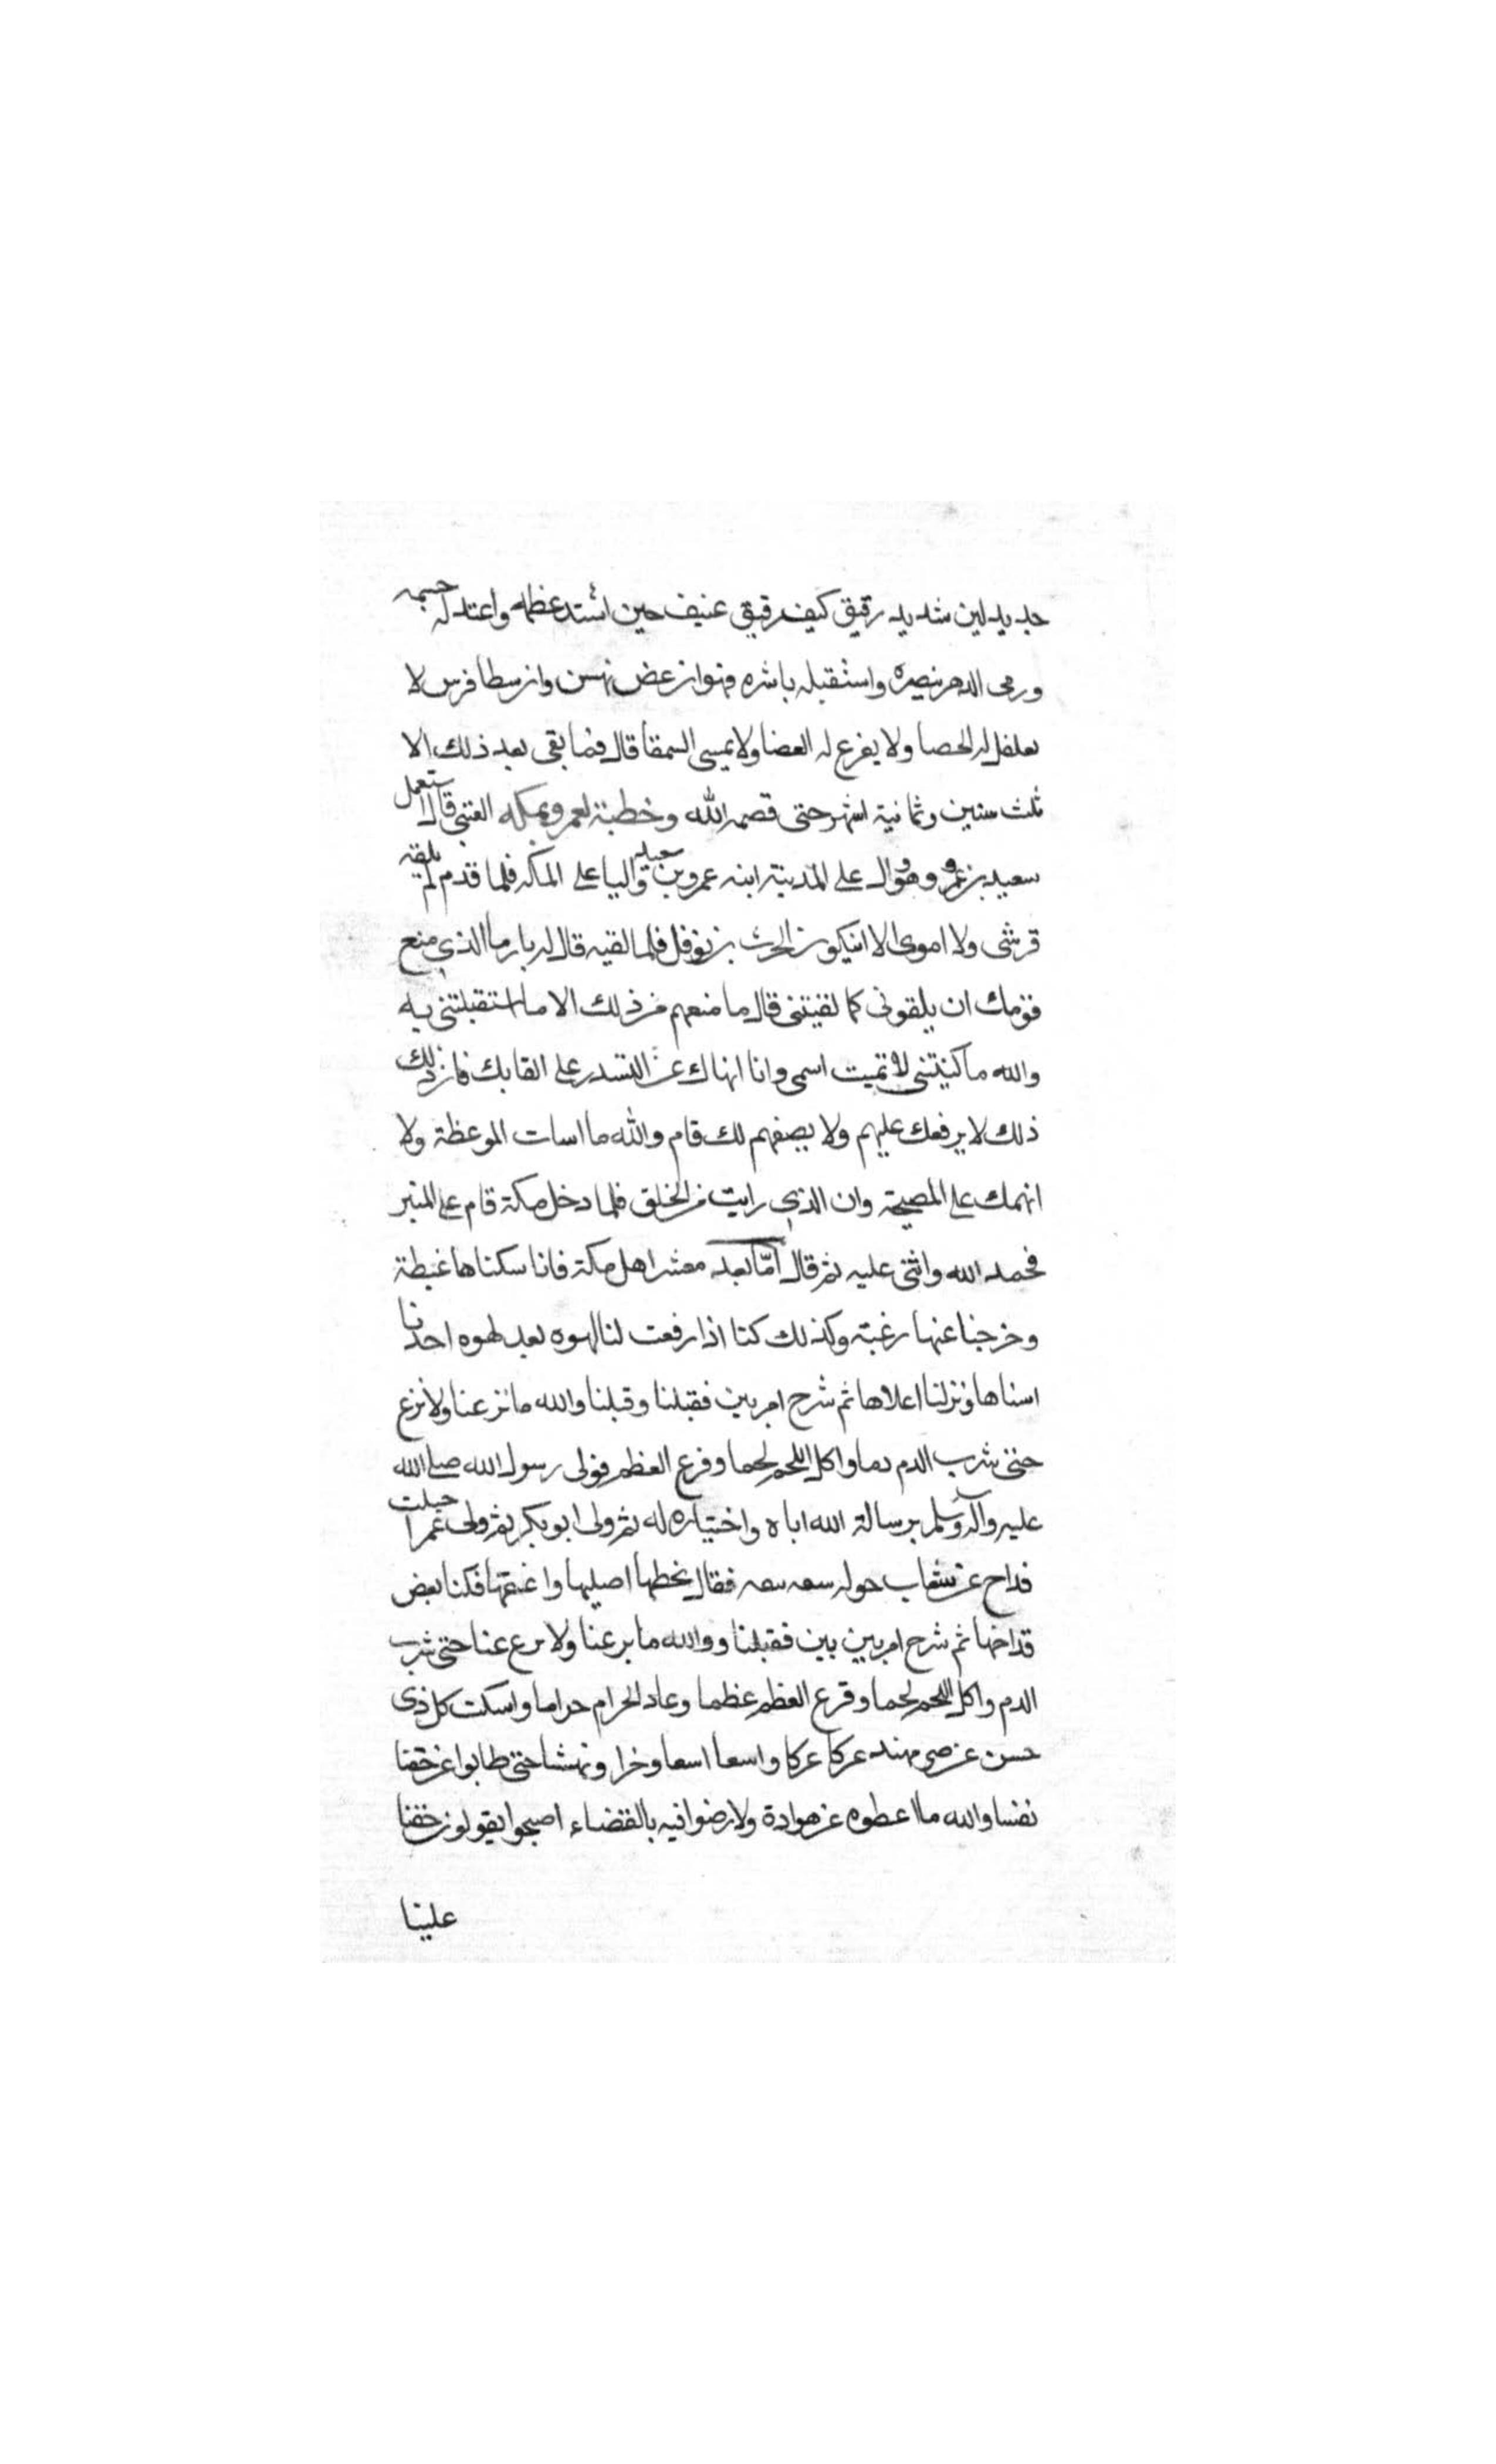 حديد لين شديد رقيق كيف رفيق عنيف حين اشتد عظمه واعتدل جسمه
ورمى الدهر ببصره واستقبله باشره فهو ان عض نهس وان سطا فرس لا
يقلقل له الحصا ولا يفزع له العصا ولا يمسى السمقا قال فما بقى بعد ذلك الا
ثلث سنين وثمانية اشهر حتى قصمه الله وخطبة لعمرو بمكه العتبى قال استعمل
سعيد بن عمرو وهو وال على المدينة ابنه عمرو بن سعيد واليا على المكه فلما قدم لم يلقه
قرشى ولا اموى الا ان يكون الحرث بن نوفل فلما لقيه قال له يا رما الذي منع
قومك ان يلقونى كما لقيتنى قال ما منعهم من ذلك الا ما استقبلتنى به
والله ما كنيتنى لا تميت اسمى وانا انهاك عن التشدر على القابك فان ذلك
ذلك لا يرفعك عليهم ولا يصفهم لك قام والله ما اسات الموعظة ولا
اتهمك على المصيحة وان الذي رايت من الخلق فلما دخل مكة قام على المنبر
فحمد الله واثنى عليه ثم قال امّا بعد معشر اهل مكة فانا سكناها غبطة
وخرجنا عنها رغبة وكذلك كنا اذا رفعت لنا الهوه بعد لهوه احدنا
اسناها ونزلنا اعلاها ثم شرح امر بين فقبلنا وقبلنا والله ما نزعنا ولا نزع
حتى شرب الدم دما واكل اللحم لحما وفرع العظم فولى رسول الله صلى الله
عليه وآله وسلم برسالة الله اياه واختياره له ثم ولى ابو بكر ثم ولى عمر اجلت
قداح عن شعاب حوله سعه سعه فقال بخطها اصيلها واغنتها فكنا بعض
قداحها ثم شرح امر بين بين فقبلنا ووالله ما برعنا ولا برع عنا حتى شرب
الدم واكل اللحم لحما وقرع العظم عظما وعاد الحرام حراما واسكت كل ذى
حسن عن صى مهند عركا عركا واسعا اسعا وخرا ونهشا حتى طابوا عن حقنا
نفسا والله ما اعطوه عن هوادة ولا رضوا فيه بالقضاء اصبحوا يقولون حقنا
علينا